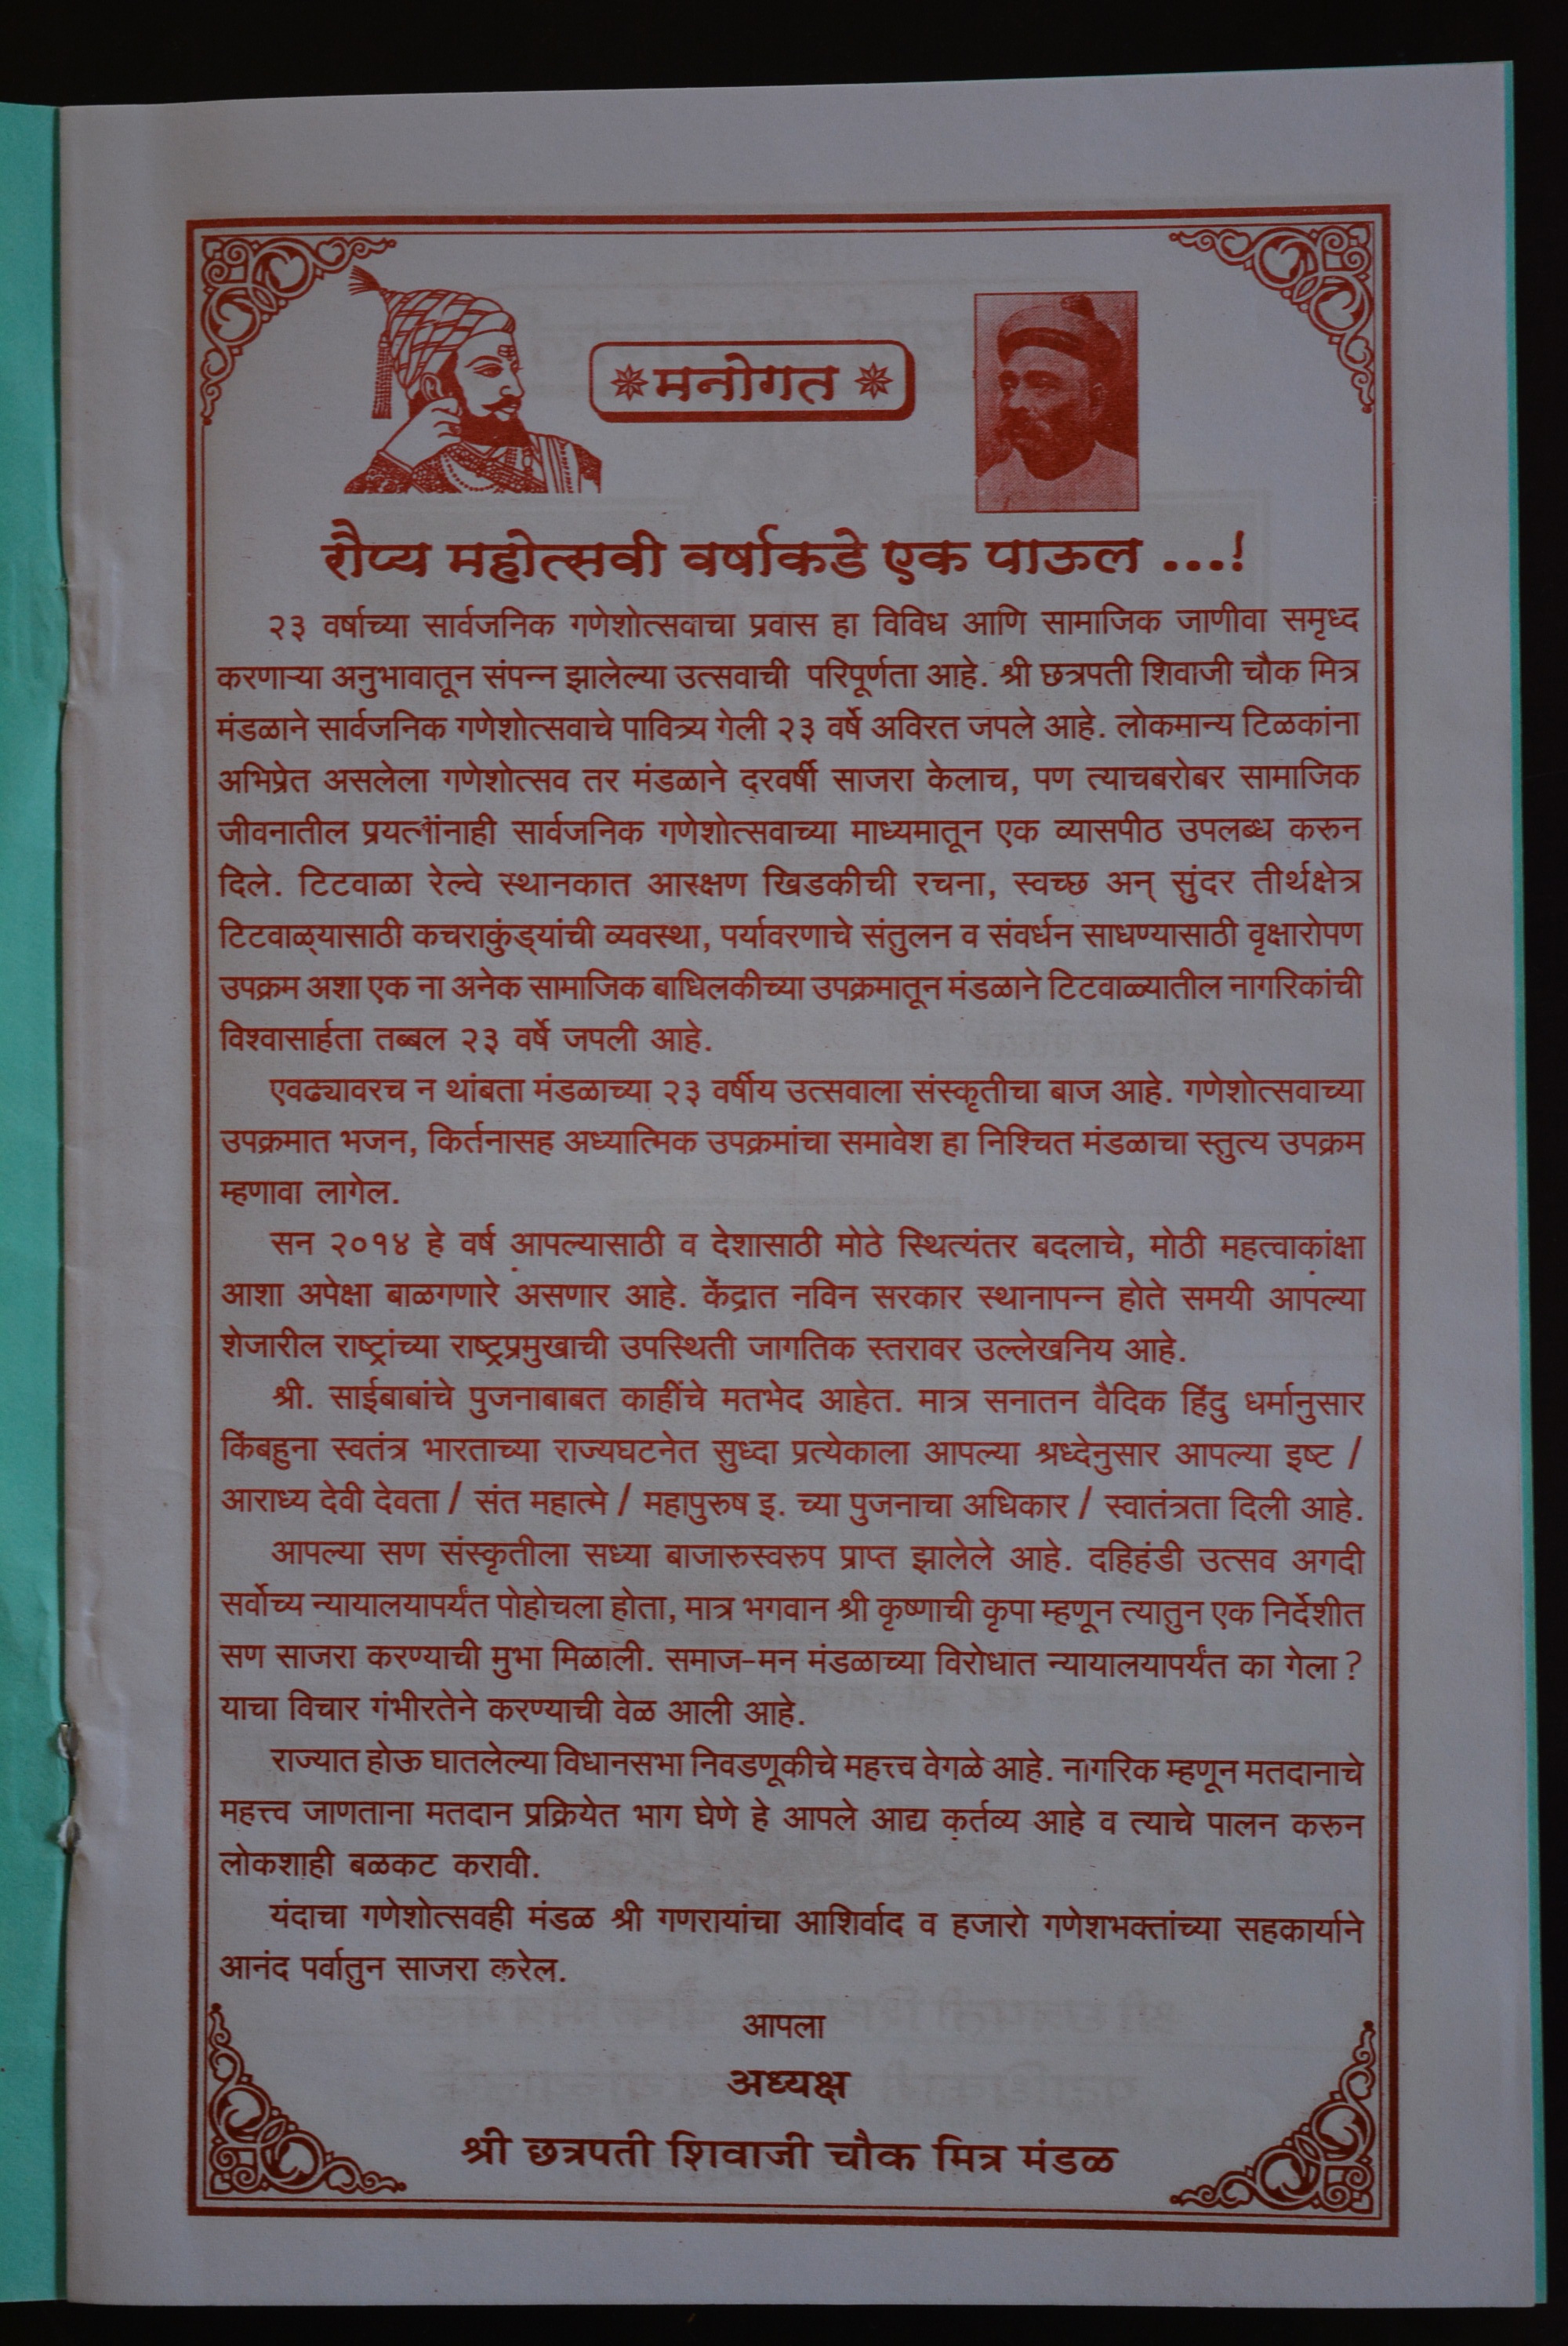 मनोगत
रौप्य महोत्सवी वर्षाकडे एक पाऊल ...!
२३ वर्षाच्या सार्वजनिक गणेशोत्सवाचा प्रवास हा विविध आणि सामाजिक जाणीवा समृध्द
करणाऱ्या अनुभावातून संपन्न झालेल्या उत्सवाची परिपूर्णता आहे. श्री छत्रपती शिवाजी चौक मित्र
मंडळाने सार्वजनिक गणेशोत्सवाचे पावित्र्य गेली २३ वर्षे अविरत जपले आहे. लोकमान्य टिळकांना
अभिप्रेत असलेला गणेशोत्सव तर मंडळाने दरवर्षी साजरा केलाच, पण त्याचबरोबर सामाजिक
जीवनातील सार्वजनिक गणेशोत्सवाच्या माध्यमातून एक व्यासपीठ उपलब्ध करून
दिले. टिटवाळा रेल्वे स्थानकात आरक्षण खिडकीची रचना, स्वच्छ अन् सुंदर तीर्थक्षेत्र
टिटवाळ्यासाठी कचराकुंड्यांची व्यवस्था, पर्यावरणाचे संतुलन व संवर्धन साधण्यासाठी वृक्षारोपण
उपक्रम अशा एक ना अनेक सामाजिक बाधिलकीच्या उपक्रमातून मंडळाने टिटवाळ्यातील नागरिकांची
विश्वासार्हता तब्बल २३ वर्षे जपली आहे.
एवढ्यावरच न थांबता मंडळाच्या २३ वर्षीय उत्सवाला संस्कृतीचा बाज आहे. गणेशोत्सवाच्या
उपक्रमात भजन, किर्तनासह अध्यात्मिक उपक्रमांचा समावेश हा निश्चित मंडळाचा स्तुत्य उपक्रम
म्हणावा लागेल.
सन २०१४ हे वर्ष आपल्यासाठी व देशासाठी मोठे स्थित्यंतर बदलाचे, मोठी महत्वाकांक्षा
आशा अपेक्षा बाळगणारे असणार आहे. केंद्रात नविन सरकार स्थानापन्न होते समयी आपल्या
शेजारील राष्ट्रांच्या राष्ट्रप्रमुखाची उपस्थिती जागतिक स्तरावर उल्लेखनिय आहे.
श्री. साईबाबांचे पुजनाबाबत काहींचे मतभेद आहेत. मात्र सनातन वैदिक हिंदु धर्मानुसार
किंबहुना स्वतंत्र भारताच्या राज्यघटनेत सुध्दा प्रत्येकाला आपल्या श्रध्देनुसार आपल्या इष्ट /
आराध्य देवी देवता / संत महात्मे / महापुरुष इ. च्या पुजनाचा अधिकार / स्वातंत्रता दिली आहे.
आपल्या सण संस्कृतीला सध्या बाजारुस्वरुप प्राप्त झालेले आहे. दहिहंडी उत्सव अगदी
सर्वोच्य न्यायालयापर्यंत पोहोचला होता, मात्र भगवान श्री कृष्णाची कृपा म्हणून त्यातुन एक निर्देशीत
सण साजरा करण्याची मुभा मिळाली. समाज-मन मंडळाच्या विरोधात न्यायालयापर्यंत का गेला ?
याचा विचार गंभीरतेने करण्याची वेळ आली आहे.
राज्यात होऊ घातलेल्या विधानसभा निवडणूकीचे महत्त्व वेगळे आहे. नागरिक म्हणून मतदानाचे
महत्त्व जाणताना मतदान प्रक्रियेत भाग घेणे हे आपले आद्य कर्तव्य आहे व त्याचे पालन करून
लोकशाही बळकट करावी.
यंदाचा गणेशोत्सवही मंडळ श्री गणरायांचा आशिर्वाद व हजारो गणेशभक्तांच्या सहकार्याने
आनंद पर्वातुन साजरा करेल.
आपला
अध्यक्ष
श्री छत्रपती शिवाजी चौक मित्र मंडळ